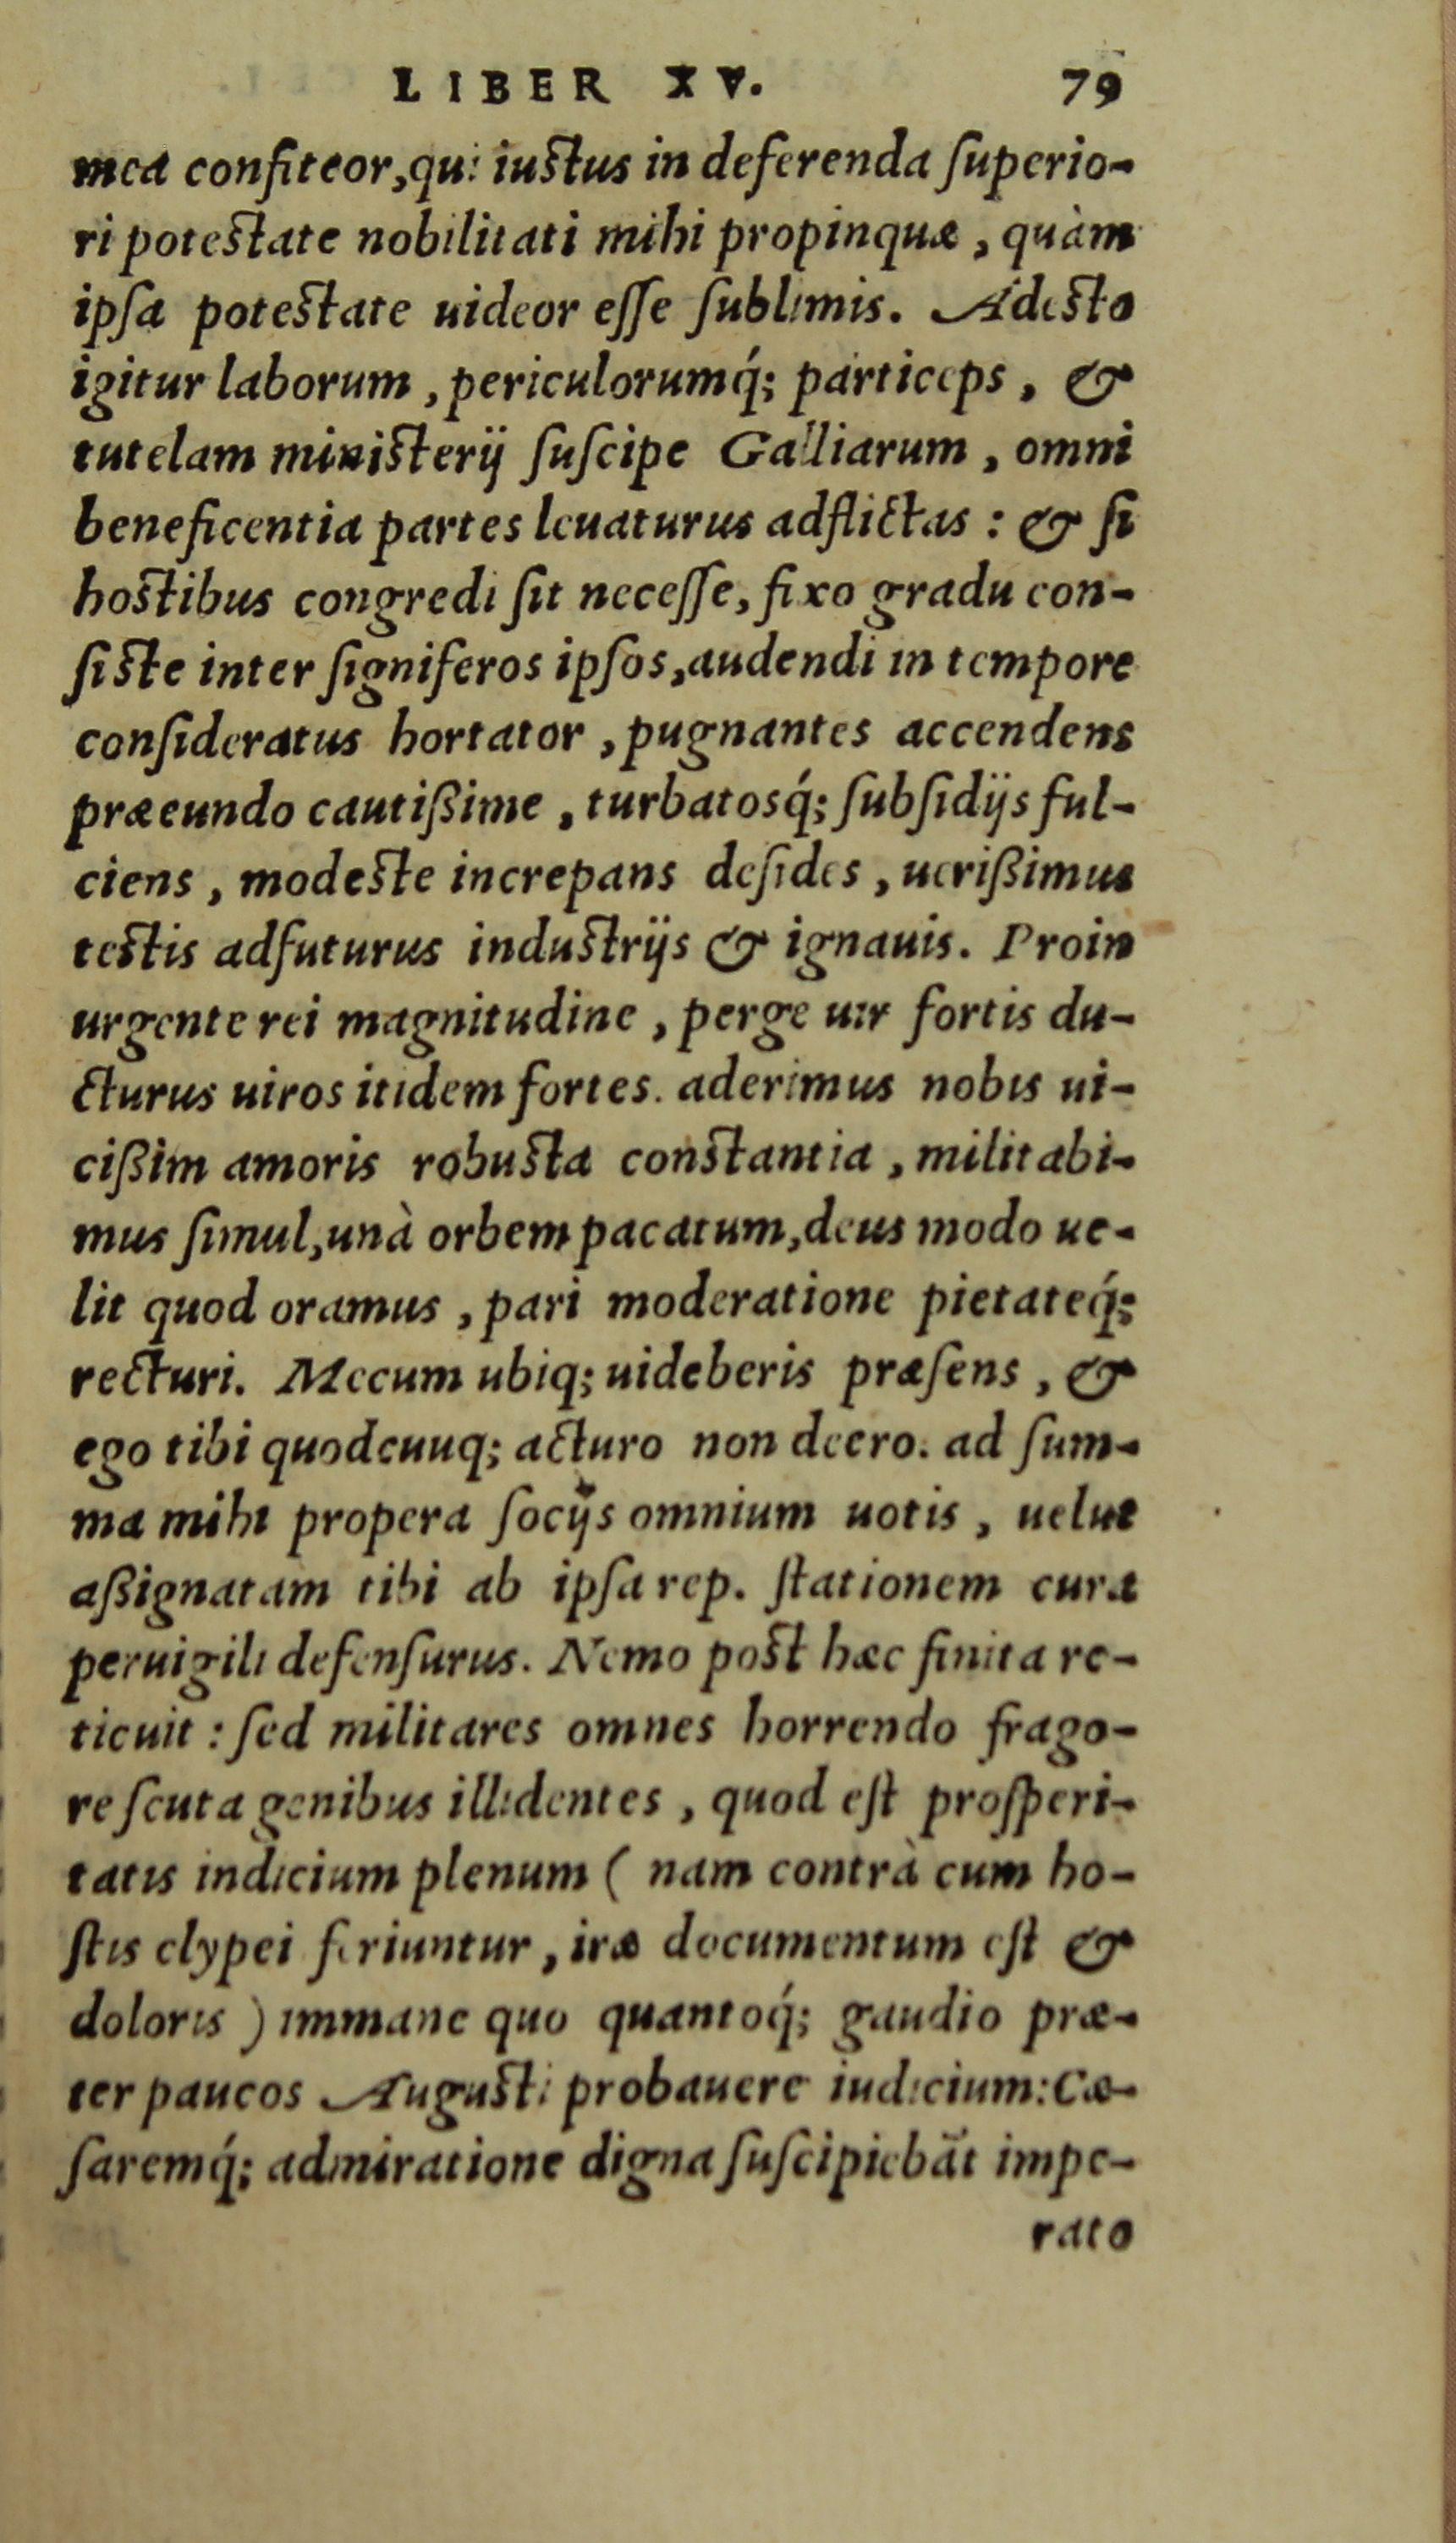 LIBER XV. 79
mea confiteor,qui iustus in deferenda ſuperio-
ri potestate nobilitati mihi propinquæ, quàm
ipſa potestate uideor eſſe ſublimis. Adesto
igitur laborum, periculorumq́; particeps, &
tutelam ministerij ſuſcipe Galliarum, omni
beneficentia partes leuaturus adflictas: & ſi
hostibus congredi ſit neceſſe, fixo gradu con-
ſiste inter ſigniferos ipſos,audendi in tempore
conſideratus hortator, pugnantes accendens
præeundo cautißime, turbatosq́; ſubſidijs ful-
ciens, modeste increpans deſides, uerißimus
testis adfuturus industrijs & ignauis. Proin
urgente rei magnitudine, perge uir fortis du-
cturus uiros itidem fortes. aderimus nobis ui-
cißim amoris robusta constantia, militabi-
mus ſimul,unà orbem pacatum,deus modo ue-
lit quod oramus, pari moderatione pietateq́;
recturi. Mecum ubiq; uideberis præſens, &
ego tibi quodcuuq; acturo non deero. ad ſum-
ma mihi propera ſocijs omnium uotis, uelut
aßignatam tibi ab ipſa rep. ſtationem cura
peruigili defenſurus. Nemo post hæc finita re-
ticuit: ſed militares omnes horrendo frago-
re ſcuta genibus illidentes, quod eſt proſperi-
tatis indicium plenum ( nam contrà cum ho-
ſtis clypei feriuntur, iræ documentum eſt &
doloris ) immane quo quantoq́; gaudio præ-
ter paucos Augusti probauere iudicium: Cæ-
ſaremq́; admiratione digna ſuſcipiebãt impe-
rato